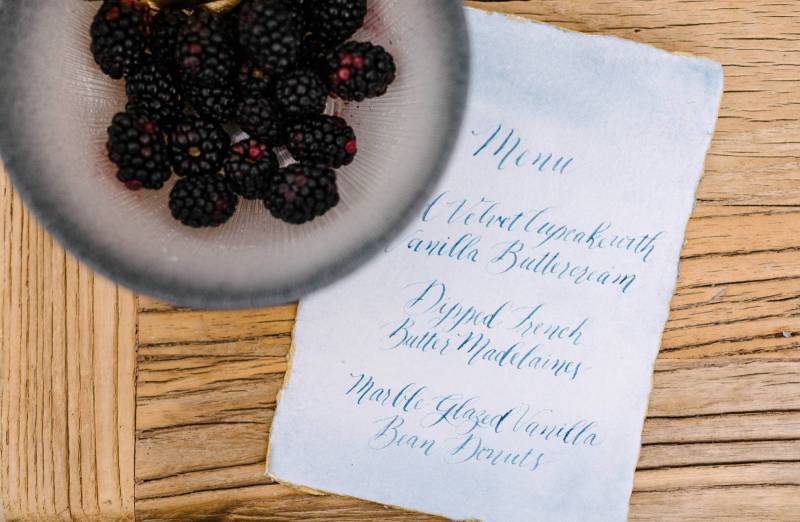 Menu
Velvet Cupcake with
anilla Buttercream
Dipped French
Butter Madelaines
Marble Glazed Vanilla
Bean Donuts